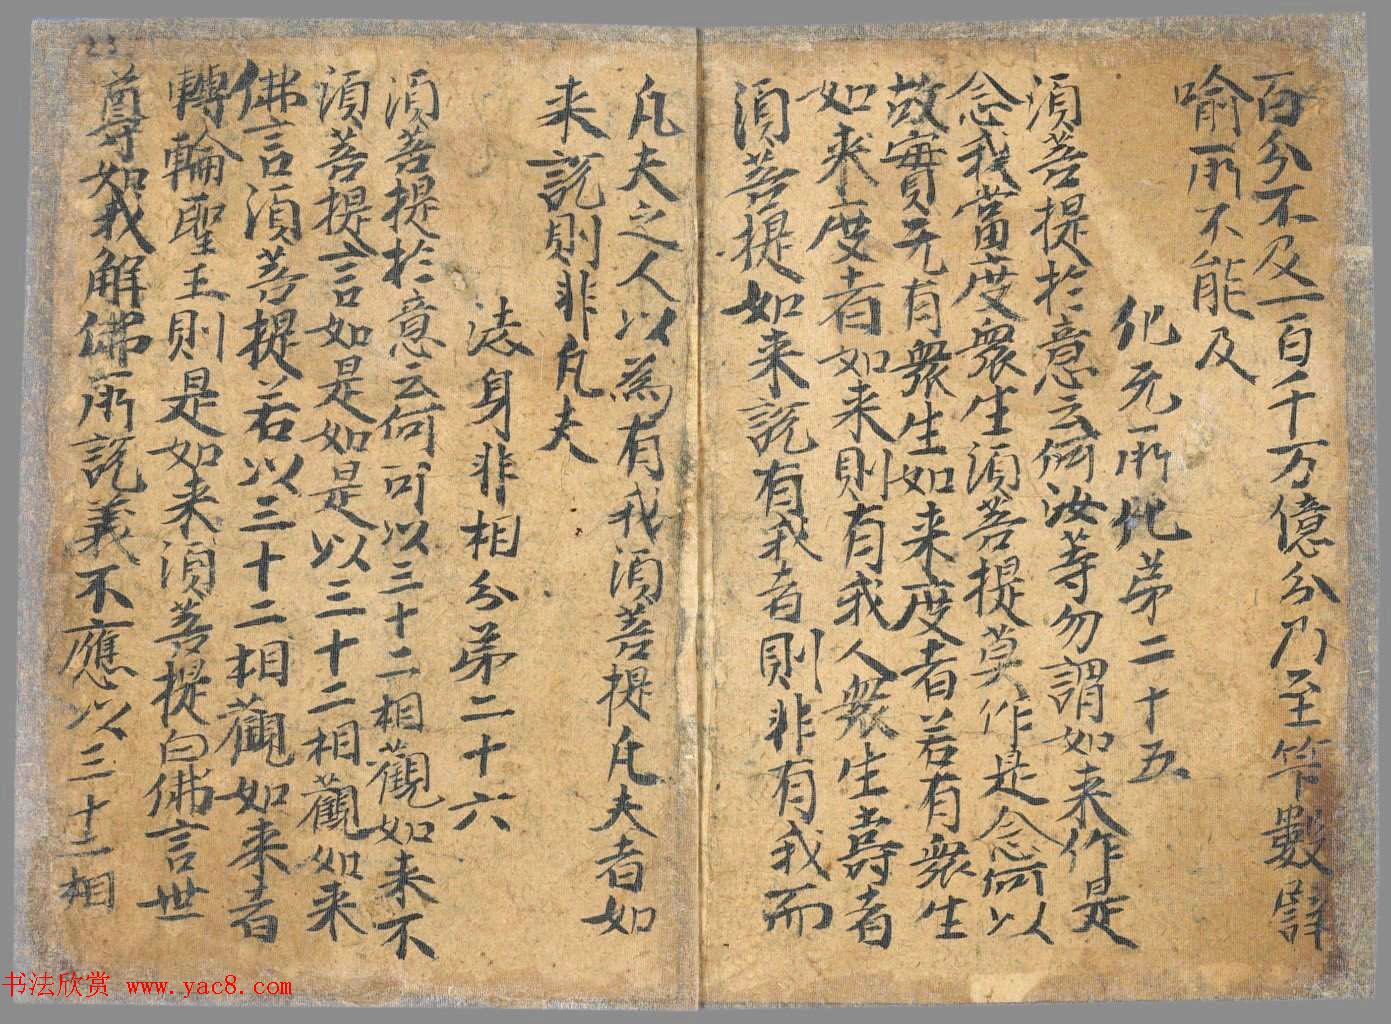 百分不及一百千万億分乃至筭數譬
喻所不能及
化无所化第二十五
須菩提扵意云何汝等勿謂如来作是
念我當度衆生須菩提莫作是念何以
故實无有衆生如来度者若有衆生
如来度者如来則有我人衆生壽者
須菩提如来說有我者則非有我而
凡夫之人以為有我須菩提凡夫者如
来說則非凡夫
法身非相分第二十六
須菩提扵意云何可以三十二相觀如来不
須菩提言如是如是以三十二相觀如来
佛言須菩提若以三十二相觀如来者
轉輪聖王則是如来須菩提白佛言世
尊如我解佛所說義不應以三十二相
23
书法欣赏 www.yac8.com